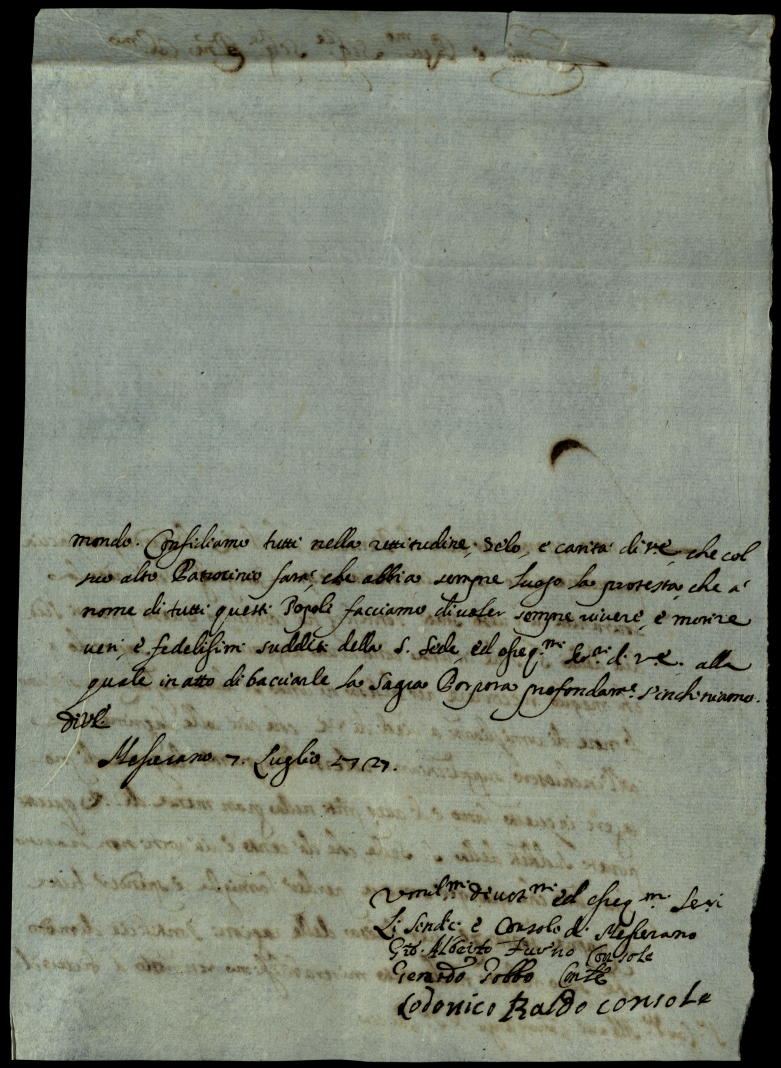 mondo. Confidiamo tutti nella rettitudine, Zelo, e carità di V.E. che col
suo alto Patrocinio farà, che abbia sempre luogo la protesta, che a
nome di tutti questi Popoli facciamo di voler sempre vivere, e morire
veri, e fedelissimi sudditi della S. Sede, ed osseq.mi Ser.ri di V.E. alla
quale in atto di bacciarle la Sagra Porpora profondam.e s'inchiniamo.
Di V.E.
Messerano 7. Luglio 1727.
Umil.mi Devot.mi ed osseq.mi Servi
Li Sendici e Consoli di Messerano
Gio. Alberto Furno Console
Gerardo Gobbo Conle
Lodovico Raldo console